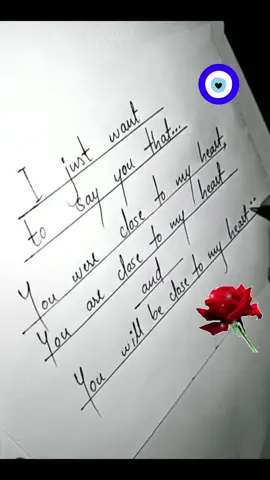 I just want
to say you that...
You were close to my heart,
You are close to my heart
and
You will be close to my heart..